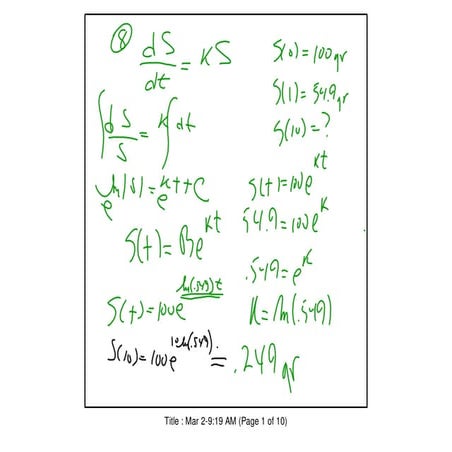 ⑧ dS/dt = KS
S(0) = 100gr
S(1) = 54.9gr
S(10) = ?
∫dS/S = K∫dt
e^ln|S| = e^kt+c
S(t) = Be^kt
S(t) = 100e^kt
54.9 = 100e^k
.549 = e^k
K = ln(.549)
S(t) = 100e^ln(.549)t
S(10) = 100e^10ln(.549) = .249 gr
Title : Mar 2-9:19 AM (Page 1 of 10)